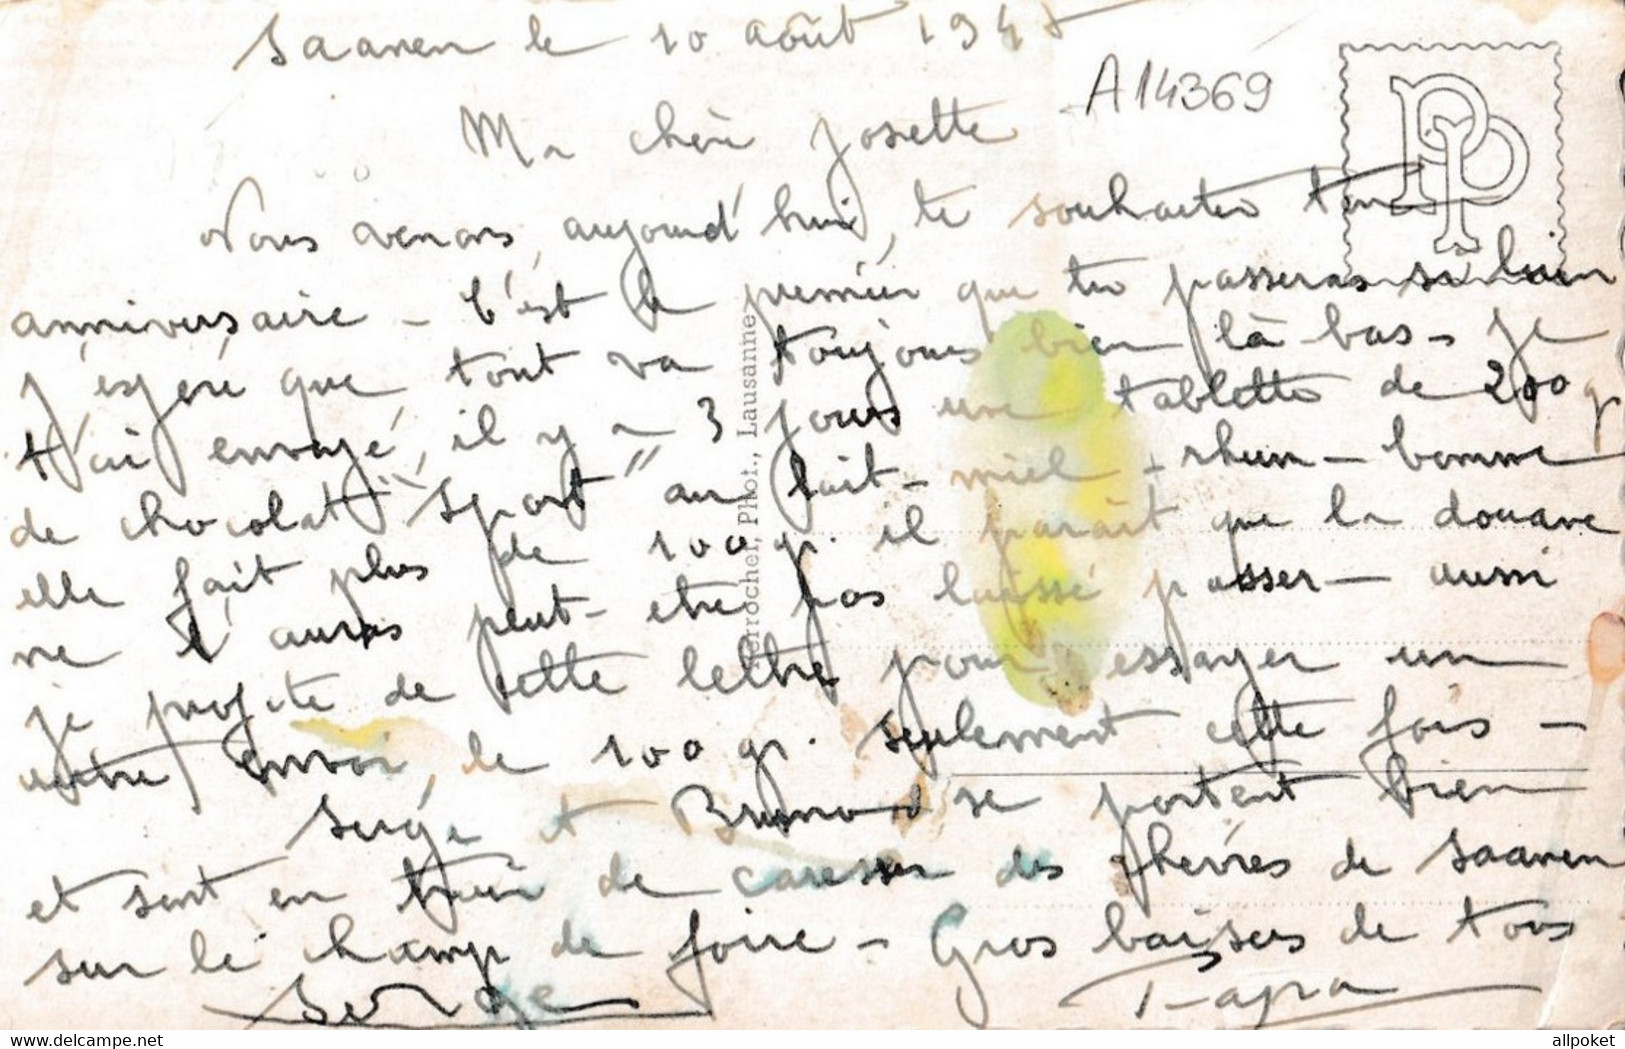 Saanen le 10 août 194
A14369
Ma chère Josette
Nous venons, aujourd'hui, te souhaiter ton
anniversaire – C'est le premier que tu passeras si loin
J'espère que tout va toujours bien là bas – Je
t'ai envoyé, il y a 3 jours une tablette de 200 g
de chocolat "Sport" au lait – miel + rhum – comme
elle fait plus de 100 gr. il paraît que la douane
ne l'auras peut-etre pas laissé passer – aussi
je profite de cette lettre pour essayer un
autre envoi, de 100 gr. seulement cette fois –
Serge et se portent bien
et sont en train de caresser des chèvres de Saanen
sur le champ de foire – Gros baisers de tous
Serge Papa
Perrochet, Phot., Lausanne
PP
www.delcampe.net
allpoket